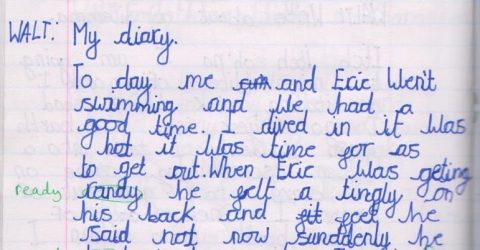 WALT: My diary.
To day me and Eric Went
swimming and We had a
good time. I dived in it Was
hot it Was time for as
to get out. When Eric Was geting
ready randy he felt a tingly on
his back and feet he
said not now sunddenly he